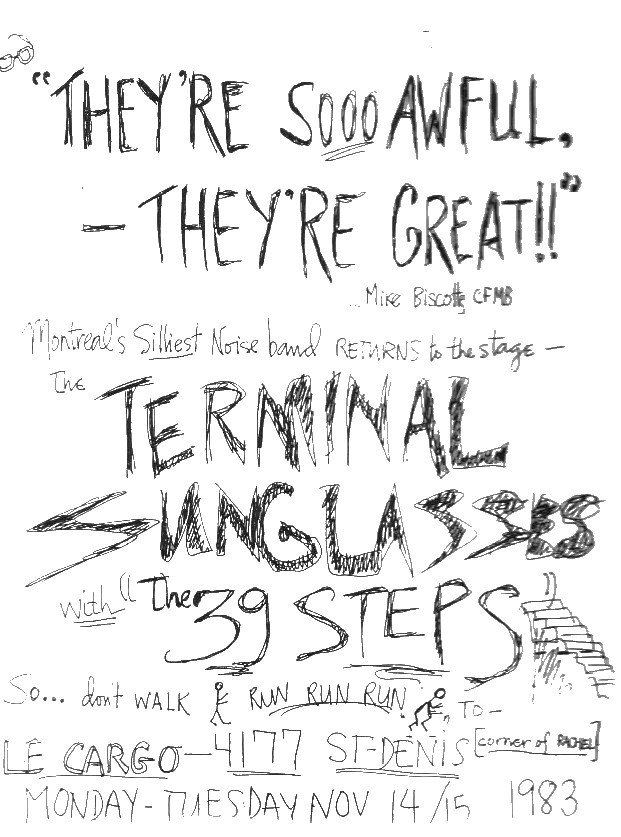 "THEY'RE SOOO AWFUL,
— THEY'RE GREAT!!"
...Mike Biscotti CFMB
Montreal's Silliest Noise band RETURNS to the stage —
The TERMINAL
SUNGLASSES
with "The 39 STEPS"
So... don't WALK RUN RUN RUN, TO —
LE CARGO — 4177 ST-DENIS [corner of RACHEL]
MONDAY - TUESDAY NOV 14/15 1983